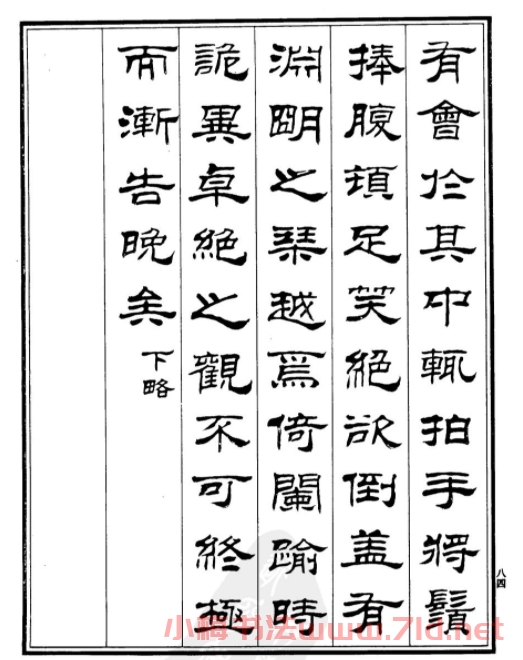 有會於其中輒拍手將鬚
捧腹頓足笑絕欲倒蓋有
淵明之琹越焉倚闌踰時
詭異卓絕之觀不可終極
而漸告晚矣
下略
八四
小梅书法www.71d.net